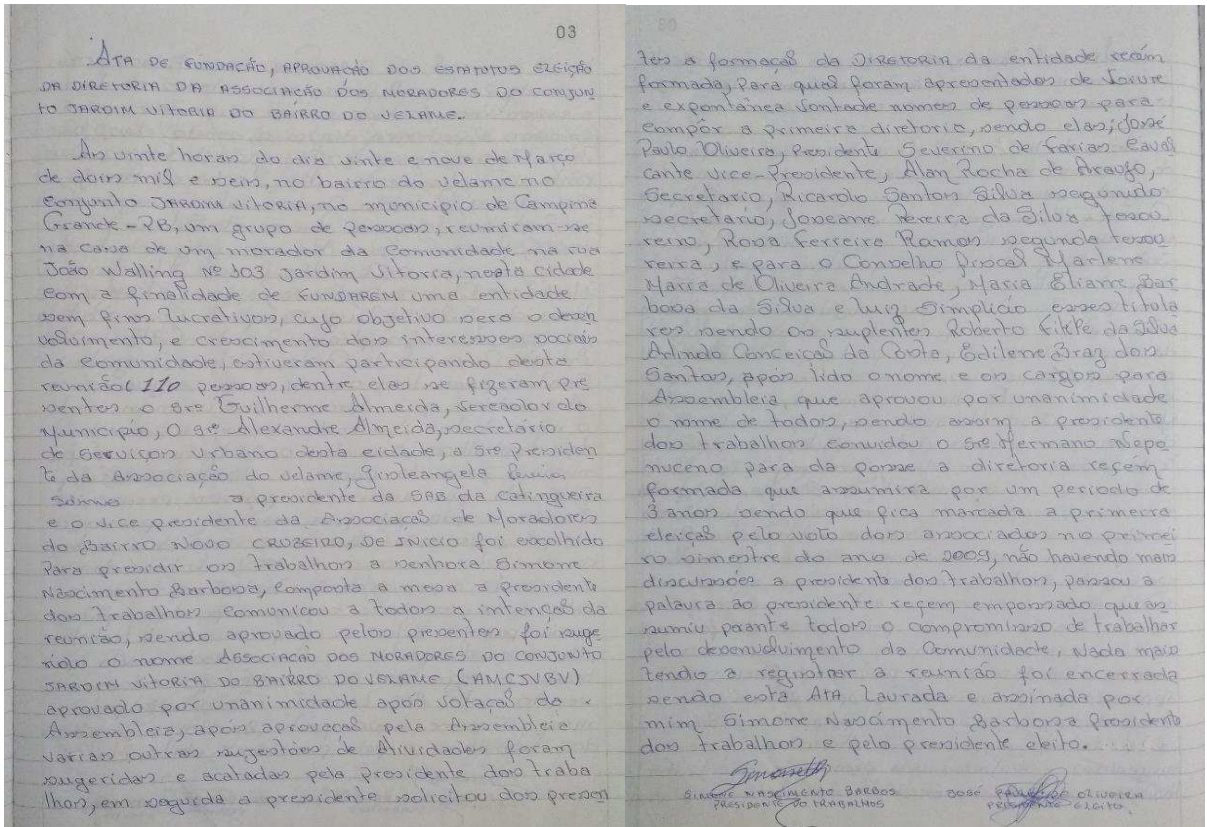 03
ATA DE FUNDAÇÃO, APROVAÇÃO DOS ESTATUTOS ELEIÇÃO
DA DIRETORIA DA ASSOCIAÇÃO DOS MORADORES DO CONJUN
TO JARDIM VITORIA DO BAIRRO DO VELAME.
As vinte horas do dia vinte e nove de Março
de dois mil e seis, no bairro do velame no
Conjunto JARDIM VITORIA, no municipio de Campina
Grande - PB, um grupo de pessoas, reuniram-se
na casa de um morador da Comunidade na rua
João Walling Nº 303 Jardim Vitoria, nesta cidade
com a finalidade de FUNDAREM uma entidade
sem fins lucrativos, cujo objetivo sera o desen
volvimento, e crescimento dos interesses sociais
da comunidade, estiveram participando desta
reunião (110 pessoas, dentre elas se fizeram pre
sentes o sre Guilherme Almeida, Vereador do
Municipio, O sre Alexandre Almeida, secretário
de Serviços Urbano desta cidade, a sre Presiden
te da Associação do velame, Giroleangela
a presidente da SAB da Catingueira
e o vice presidente da Associaçaõ de Moradores
do Bairro NOVO CRUZEIRO, DE INICIO foi escolhido
Para presidir os trabalhos a senhora Simone
Nascimento Barbosa, composta a mesa a presidente
dos trabalhos comunicou a todos a intençaõ da
reunião, sendo aprovado pelos presentes foi suge
rido o nome ASSOCIAÇÃO DOS MORADORES DO CONJUNTO
JARDIM VITORIA DO BAIRRO DO VELAME (AMCJVBV)
aprovado por unanimidade após votaçaõ da
Assembleia, após aproveçaõ pela Assembleia
varias outras sujestões de Atividades foram
sugeridas e acatadas pela presidente dos traba
lhos, em seguida a presidente solicitou dos presen
tes a formaçaõ da DIRETORIA da entidade recém
formada, para qual foram apresentados de livre
e expontânea vontade nomes de pessoas para
compôr a primeira diretoria, sendo elas; José
Paulo Oliveira, Presidente Severino de farias Caval
cante vice-Presidente, Alan Rocha de Araujo,
Secretario, Ricardo Santos Silva segundo
secretario, Joseane Pereira da Silva Tesou
reiro, Rosa Ferreira Ramos segunda tesou
reira, e para o Conselho fiscal Marlene
Maria de Oliveira Andrade, Maria Eliane Bar
bosa da Silva e Luiz Simplicio esses titula
res sendo os suplentes Roberto Filipe da Silva
Arlindo Conceiçaõ da Costa, Edilene Braz dos
Santos, após lido o nome e os cargos para
Assembleia que aprovou por unanimidade
o nome de todos, sendo assim a presidente
dos trabalhos convidou o Sre Hermano Nepo
nuceno para da posse a diretoria reçem
formada que assumira por um periodo de
3 anos sendo que fica marcada a primeira
eleiçaõ pelo voto dos associados no primei
ro simestre do ano de 2009, não havendo mais
discussões a presidente dos trabalhos, passou a
palavra ao presidente reçem empossado que as
sumiu perante todos o compromisso de trabalhar
pelo desenvolvimento da Comunidade, Nada mais
tendo a registrar a reunião foi encerrada
sendo esta ATA Lavrada e assinada por
mim Simone Nascimento Barbosa Presidente
dos trabalhos e pelo presidente eleito.
SIMONE NASCIMENTO BARBOS
PRESIDENTE DO TRABALHOS
JOSÉ PAULO DE OLIVEIRA
PRESIDENTE ELEITO.